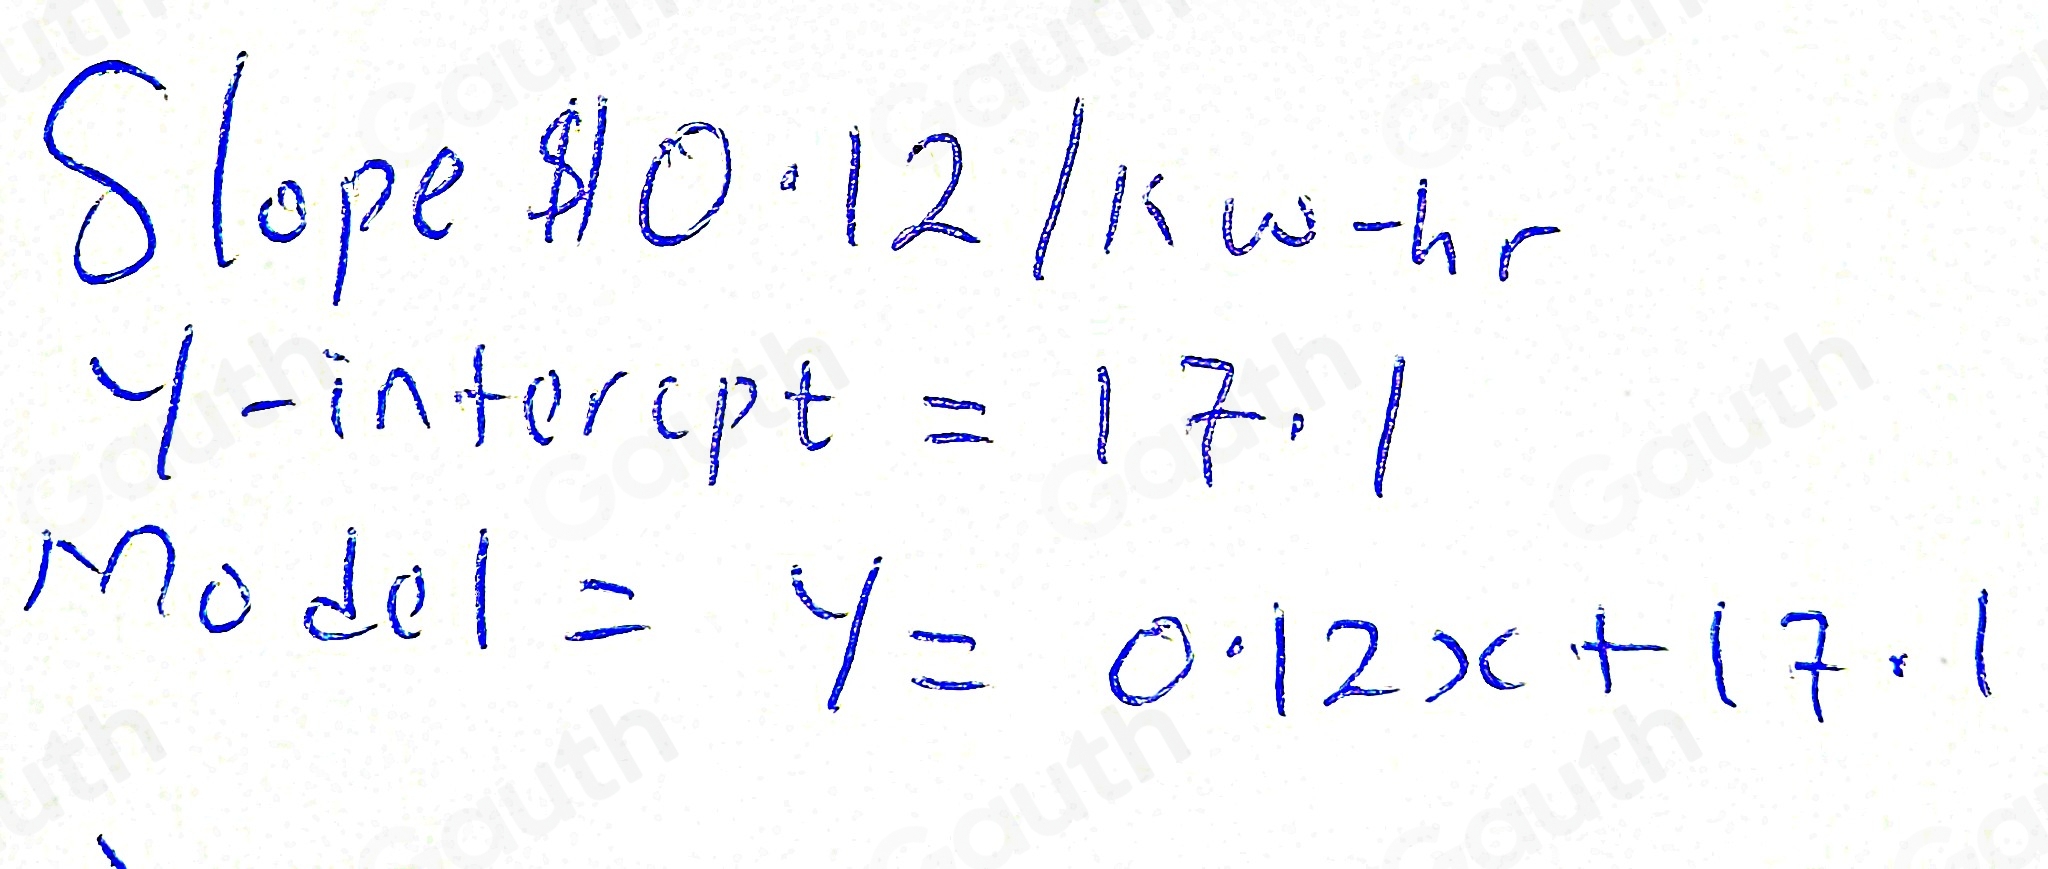 Slope $0.12/kw-hr
Y-intercpt = 17.1
Model = Y = 0.12x+17.1